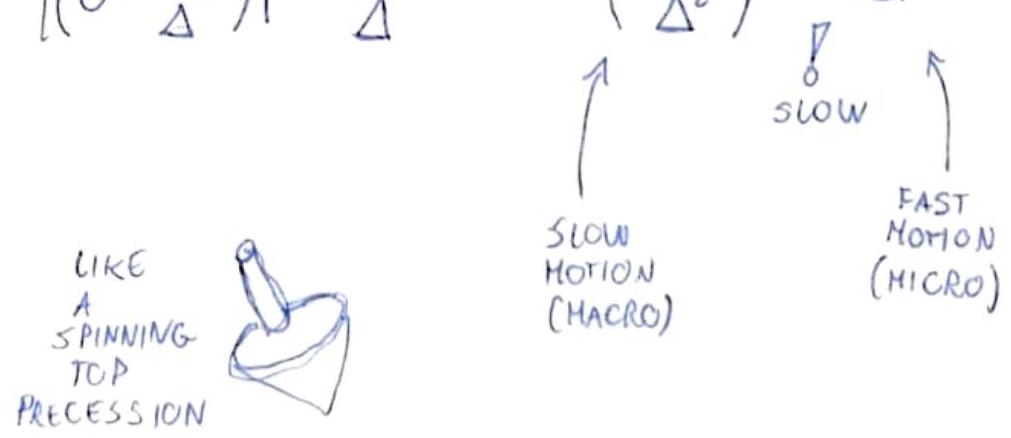 Δ Δ Δ
! SLOW
SLOW
MOTION
(MACRO)
FAST
MOTION
(MICRO)
LIKE
A
SPINNING
TOP
PRECESSION